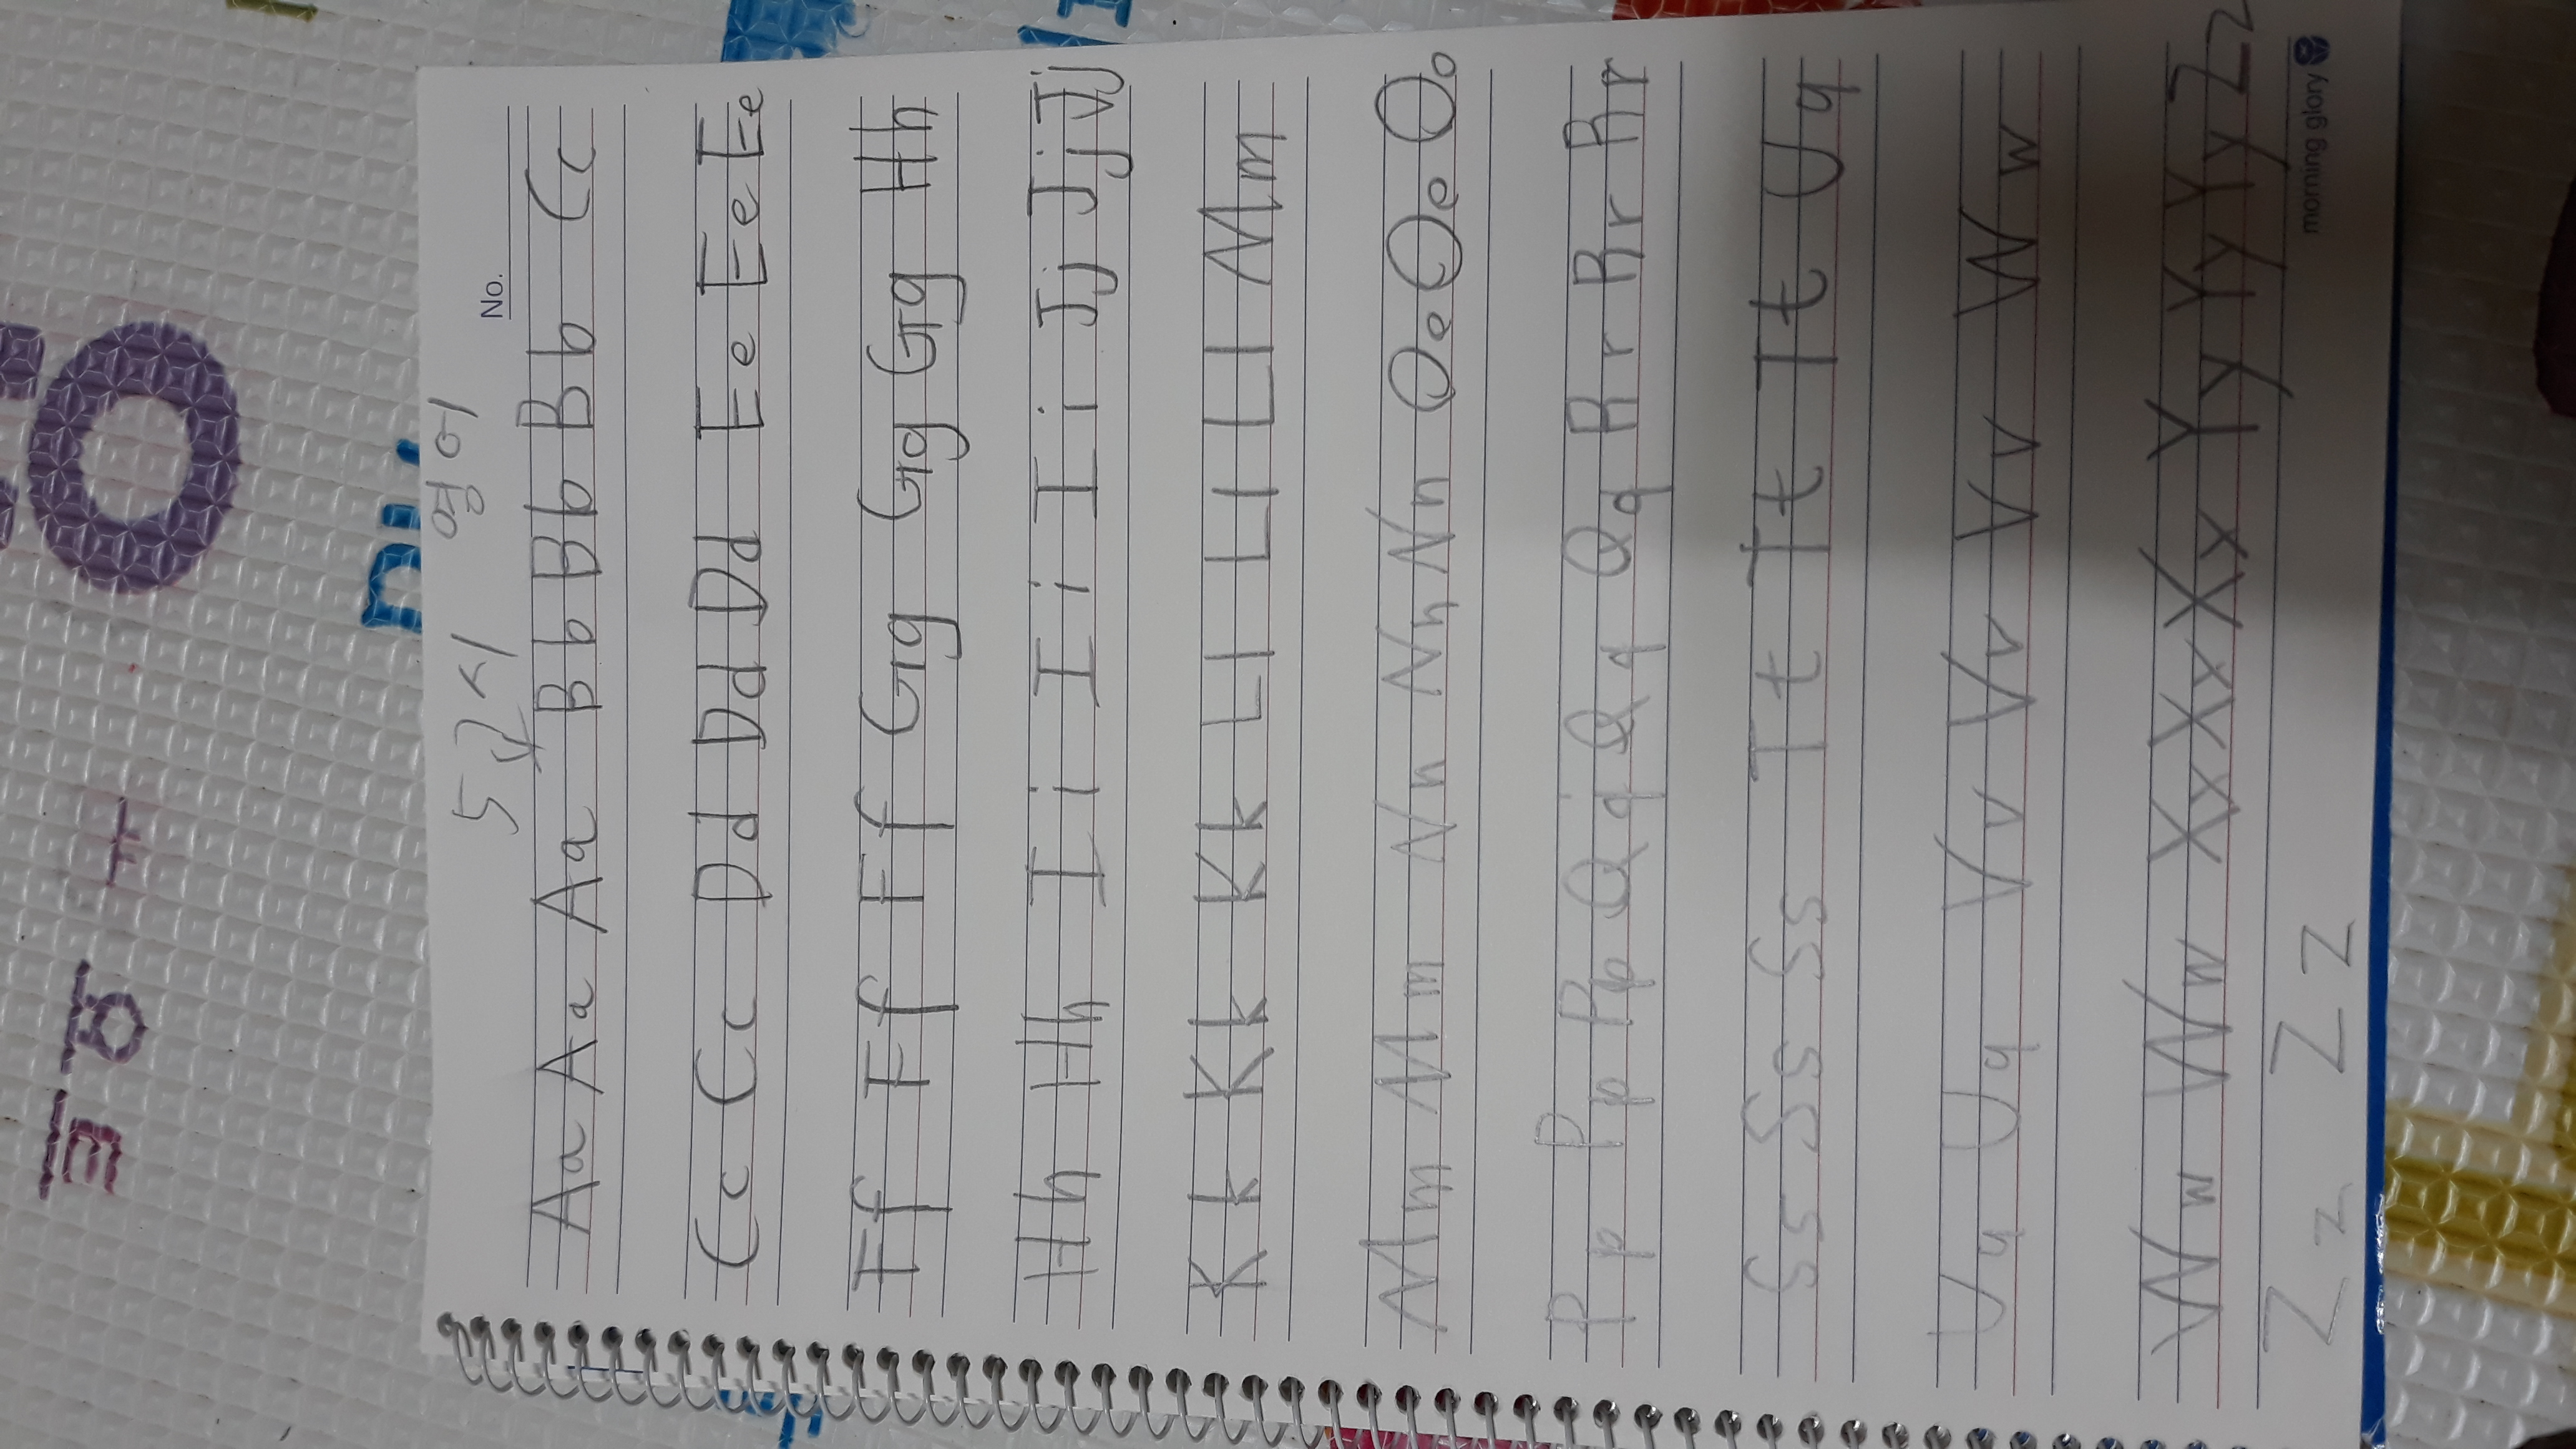 5교시 영어
No.
Aa Aa Aa Bb Bb Bb Cc
Cc Cc Dd Dd Dd Ee Ee Ee
Ff Ff Ff Gg Gg Gg Hh
Hh Hh Ii Ii Ii Jj Jj Jj
Kk Kk Kk Ll Ll Ll Mm
Mm Mm Nn Nn Nn Oe Oe Oo
Pp Pp Pp Qq Qq Qq Rr Rr Rr
Ss Ss Ss Tt Tt Tt Uu
Uu Uu Vv Vv Vv Ww
Ww Ww Xx Xx Xx Yy Yy Yy Zz
Zz Zz
morning glory